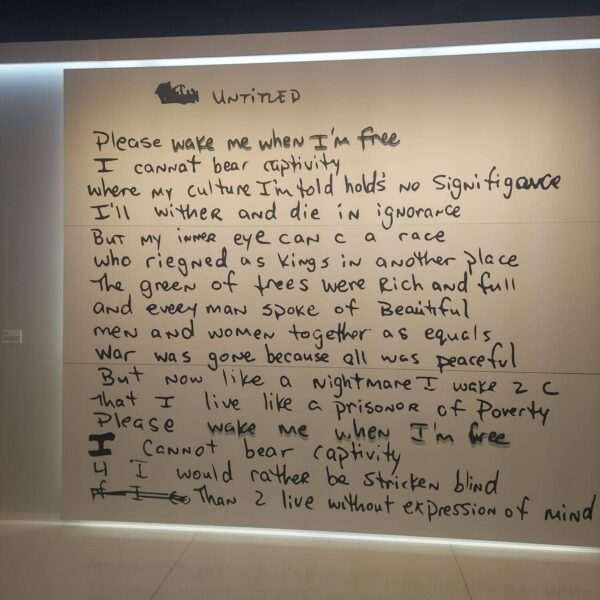 UNTITLED
Please wake me when I'm free
I cannot bear captivity
where my culture I'm told holds no Signifigance
I'll wither and die in ignorance
But my inner eye can c a race
who riegned as kings in another place
the green of trees were Rich and full
and every man spoke of Beautiful
men and women together as equals
War was gone because all was peaceful
But now like a nightmare I wake 2 c
That I live like a prisonor of Poverty
Please wake me when I'm free
I cannot bear captivity
4 I would rather be stricken blind
Than 2 live without expression of mind